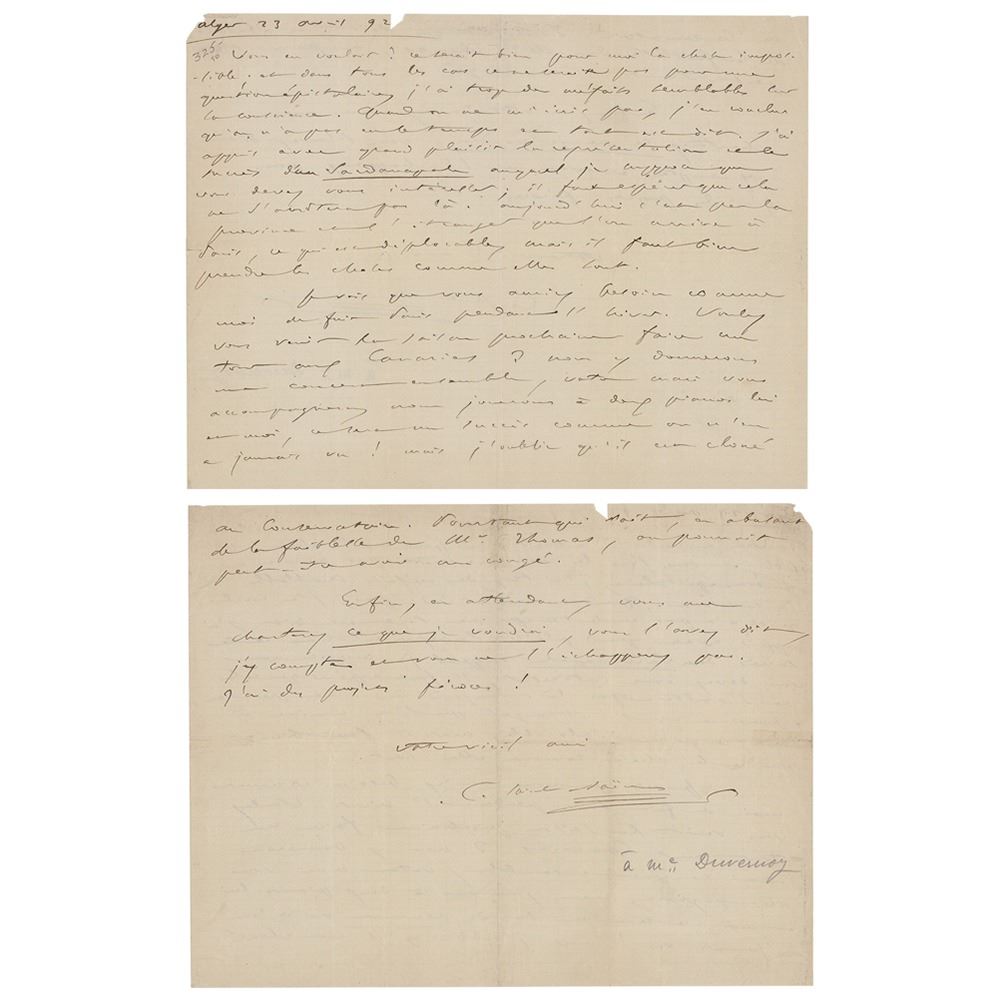 alger 23 avril 92
325-
Vous en vouloir ? ce serait bien pour moi la chose impos-
-sible. et dans tous les cas ce ne serait pas pour une
question épistolaire, j'ai trop de méfaits semblables sur
la conscience. Quand on ne m'écrit pas, j'en conclus
qu'on n'a pas eu le temps et tout est dit. j'ai
appris avec grand plaisir la représentation et le
succès d'un Sardanapale auquel je suppose que
vous devez vous intéresser ; il faut espérer que cela
ne s'arrêtera pas là. aujourd'hui c'est par la
province et l'étranger que l'on arrive à
Paris, ce qui est déplorable, mais il faut bien
prendre les choses comme elles sont.
Je vois que vous auriez besoin comme
moi de fuir Paris pendant l'hiver. Voulez
vous venir la saison prochaine faire un
tour aux Canaries ? nous y donnerons
un concert ensemble, votre mari vous
accompagnera, nous jouerons à deux pianos lui
et moi, ce sera un succès comme on n'en
a jamais vu ! mais j'oublie qu'il est cloué
au Conservatoire. Pourtant qui sait, en abusant
de la faiblesse de Mr Thomas, on pourrait
peut-être avoir un congé.
Enfin, en attendant, vous me
chanterez ce que je voudrai, vous l'avez dit,
j'y compte et vous ne l'échapperez pas.
J'ai des projets féroces !
votre vieil ami
C. Saint-Saëns
à Me Duvernoy